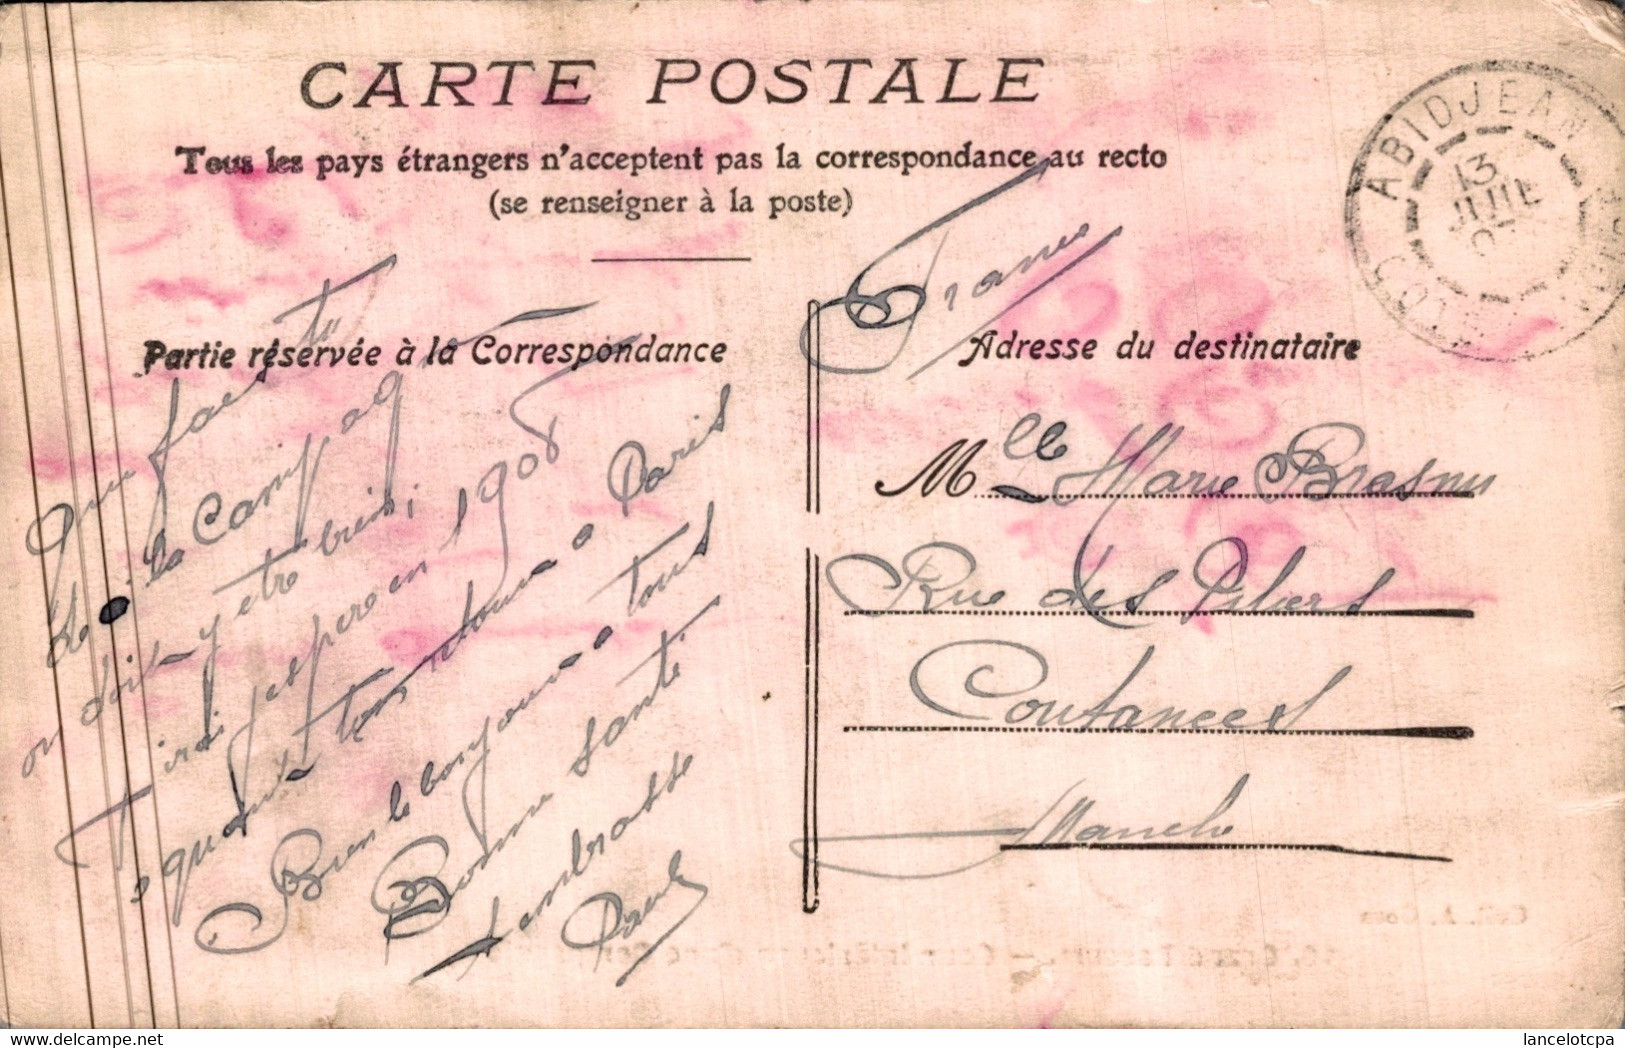 CARTE POSTALE
Tous les pays étrangers n'acceptent pas la correspondance au recto
(se renseigner à la poste)
ABIDJEAN
13
JUIL
07
France
Partie réservée à la Correspondance
Adresse du destinataire
Que fais tu
de la Campag
on doit y etre bien;
Tirai j'espere en 1908
quant ton tour a Paris
Bien le bonjour a tous
Bonne santé.
t'embrasse
Paul
Mlle Marie Brasnu
Rue des Piliers
Coutances
Manche
lancelotcpa